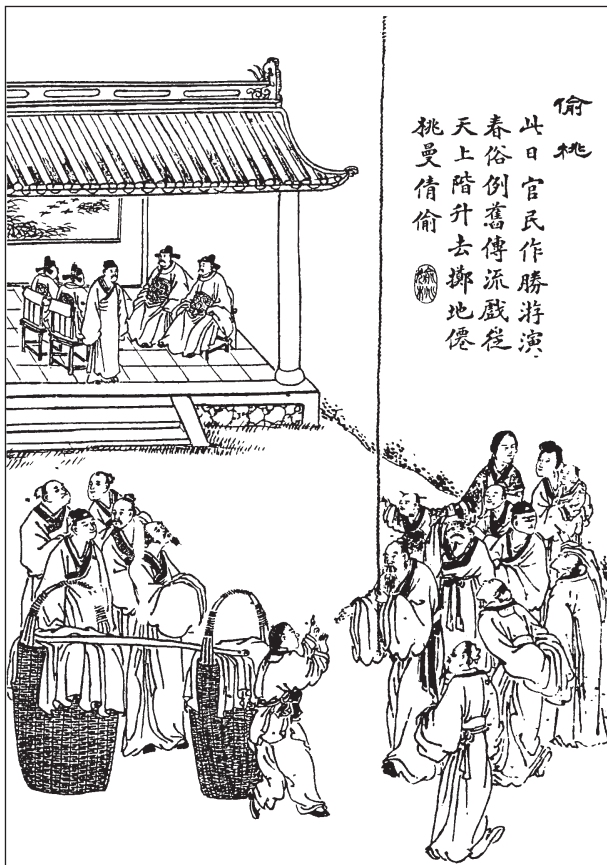 偷桃
此日官民作勝游演
春俗例舊傳流戲從
天上階升去擲地僊
桃曼倩偷